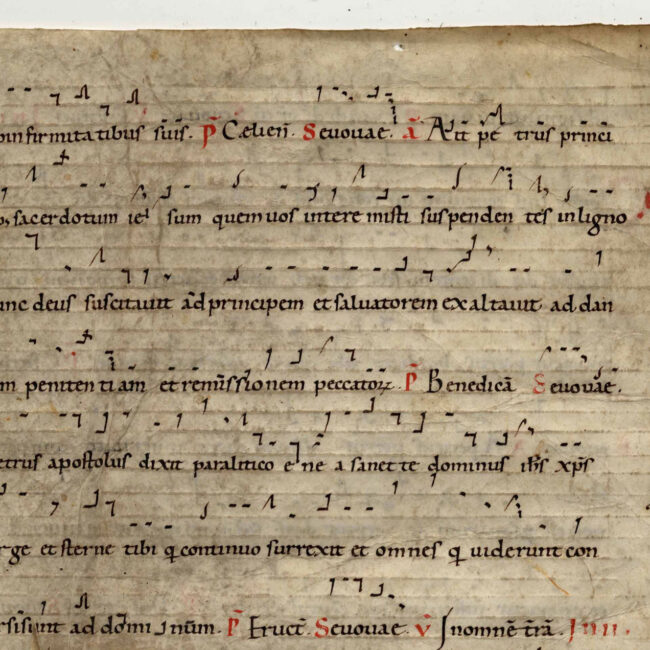 infirmitatibus suis. P̄ Cæli eñ. Seuouae. ā Ait petrus princi
sacerdotum ieſ sum quem uos interemisti suspendentes in ligno
nc deus suscitauit ad principem et saluatorem exaltauit ad dan
m penitentiam et remissionem peccatorꝝ. P̄ Benedicā Seuouae.
etrus apostolus dixit paralitico ene a sanet te dominus ihs xp̄s
rge et sterne tibi q continuo surrexit et omnes q uiderunt con
sisunt ad dominum. P̄ Eruct̄. Seuouae. v̄ In omnē t̄rā. IIII.